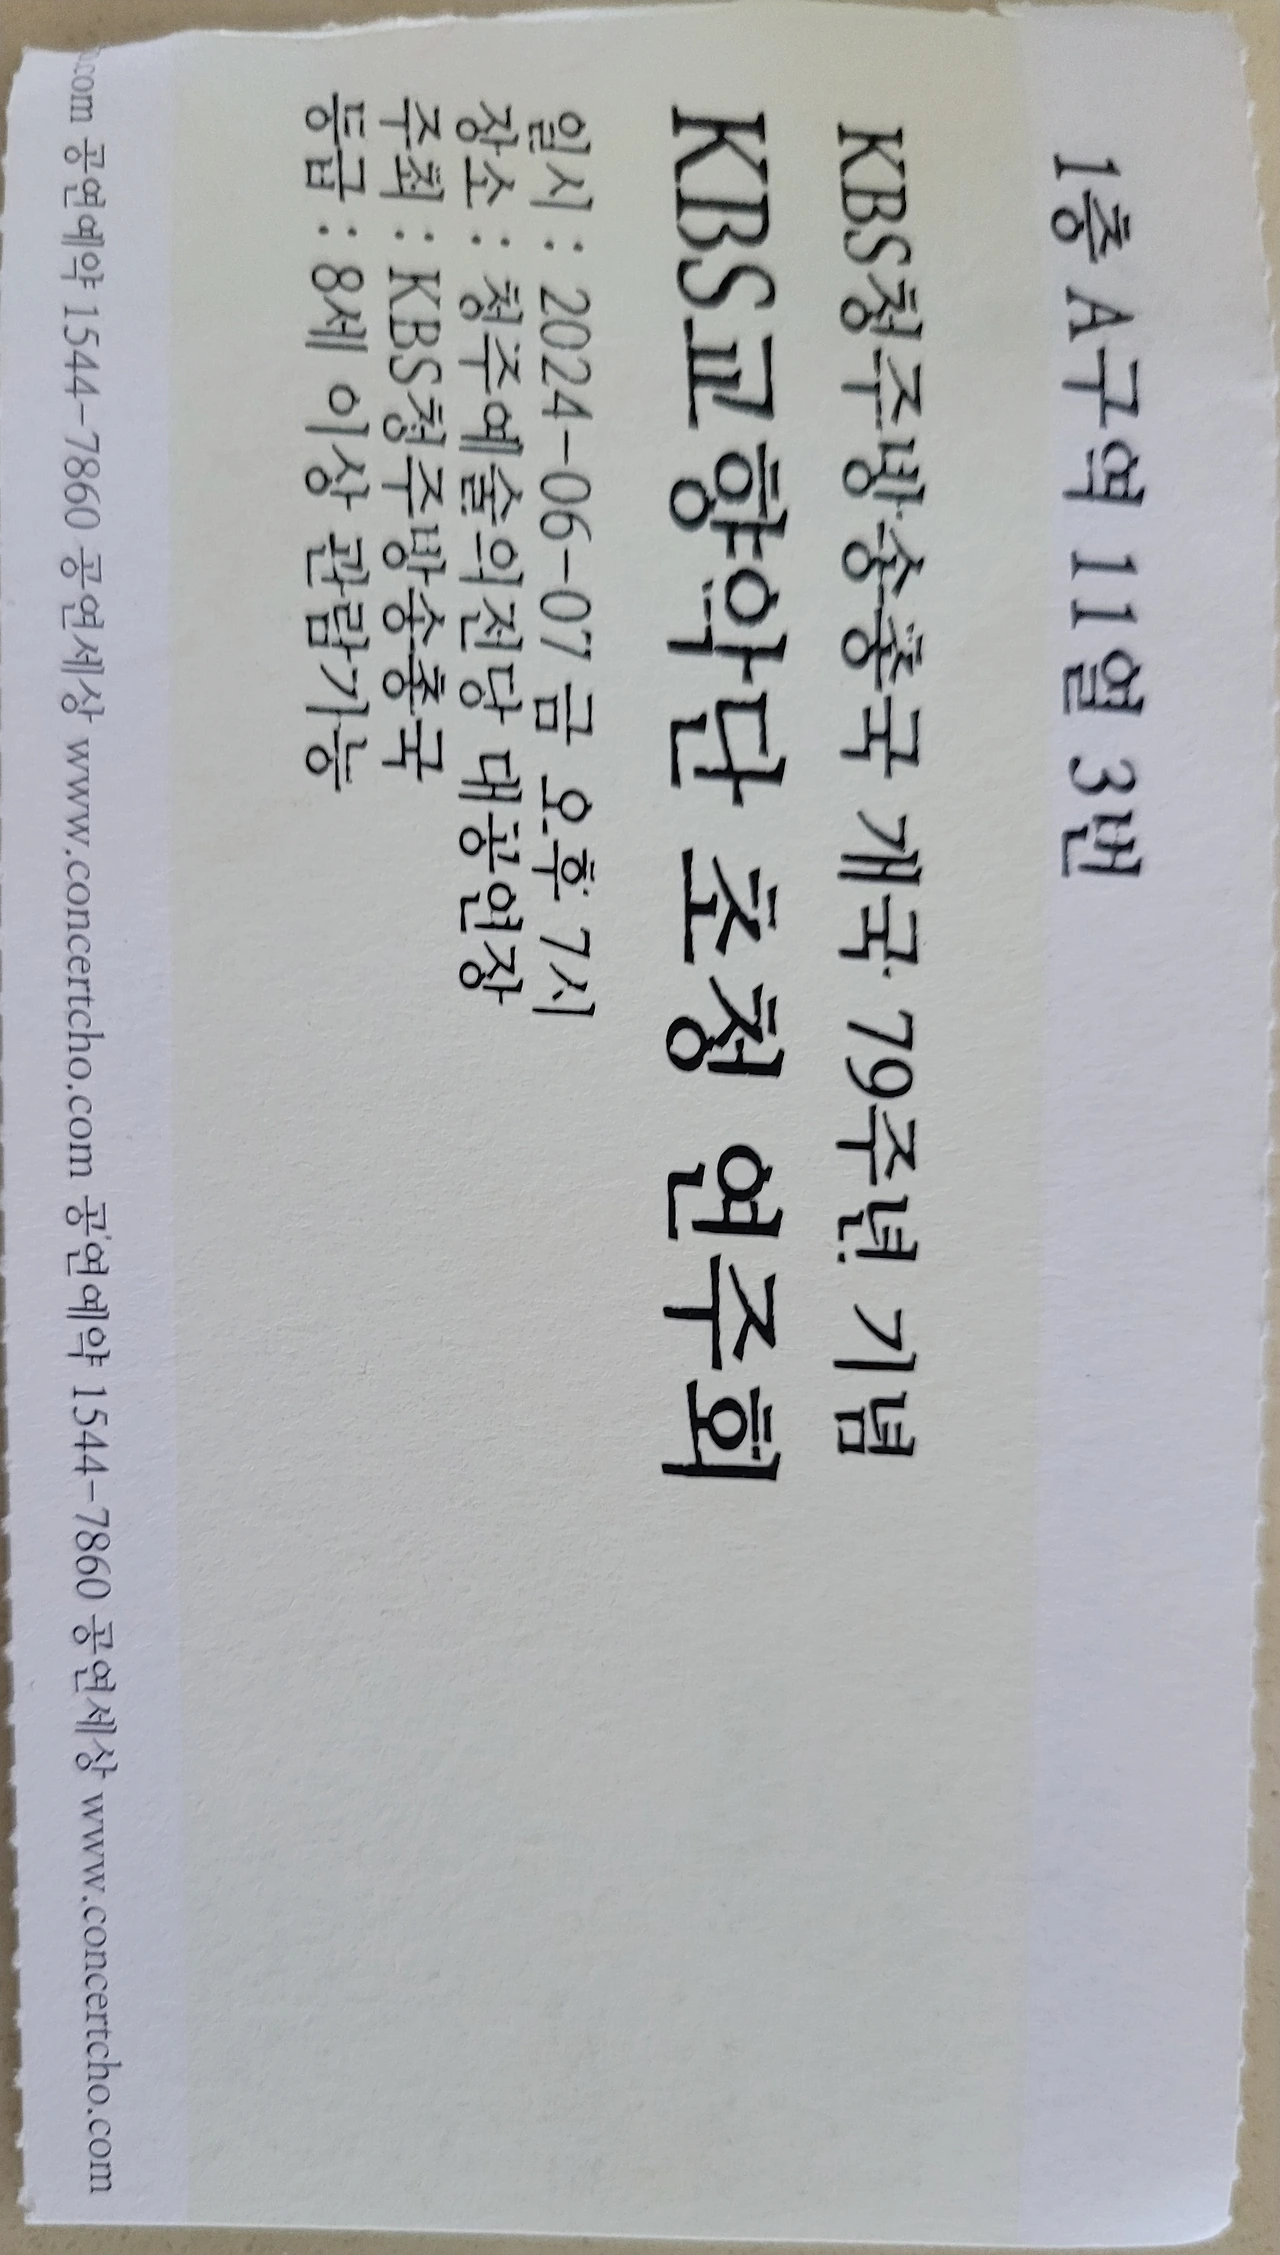 1층 A구역 11열 3번
KBS청주방송총국 개국 79주년 기념
KBS교향악단 초청 연주회
일시 : 2024-06-07 금 오후 7시
장소 : 청주예술의전당 대공연장
주최 : KBS청주방송총국
등급 : 8세 이상 관람가능
.com 공연예약 1544-7860 공연세상 www.concertcho.com 공연예약 1544-7860 공연세상 www.concertcho.com